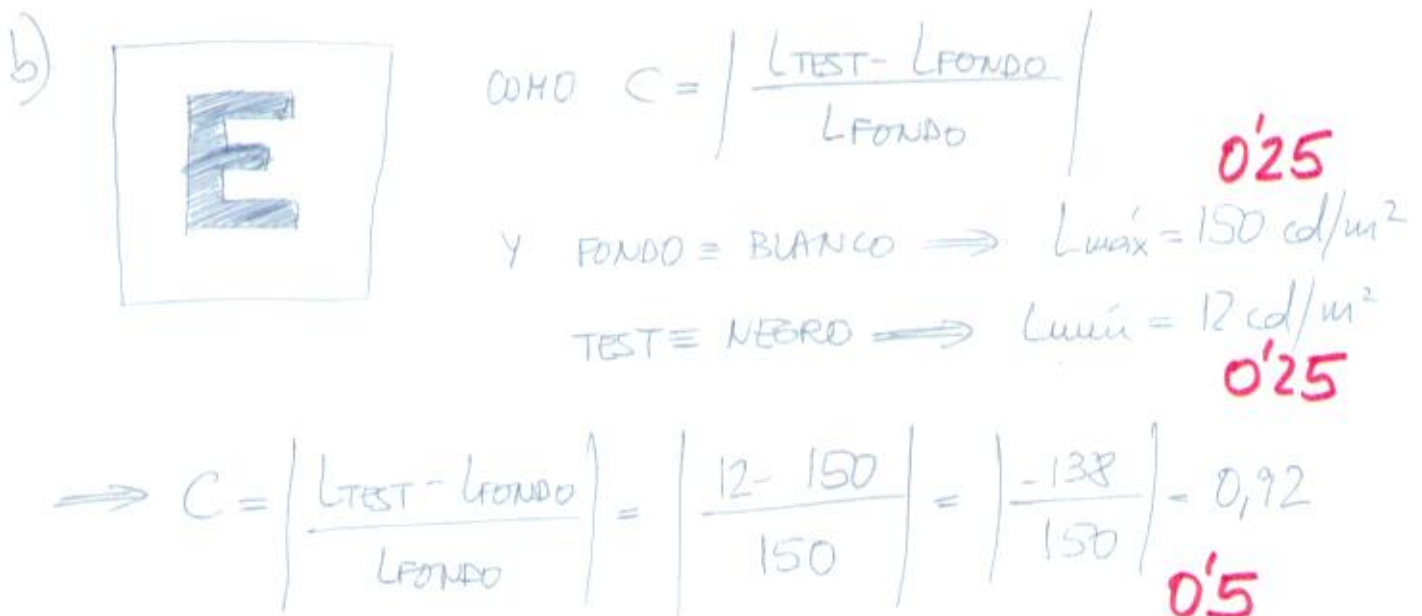 b)
E
COMO C = | LTEST - LFONDO / LFONDO |
0'25
Y FONDO ≡ BLANCO ⟹ Lmáx = 150 cd/m²
TEST ≡ NEGRO ⟹ Lmín = 12 cd/m²
0'25
⟹ C = | LTEST - LFONDO / LFONDO | = | 12 - 150 / 150 | = | -138 / 150 | = 0,92
0'5